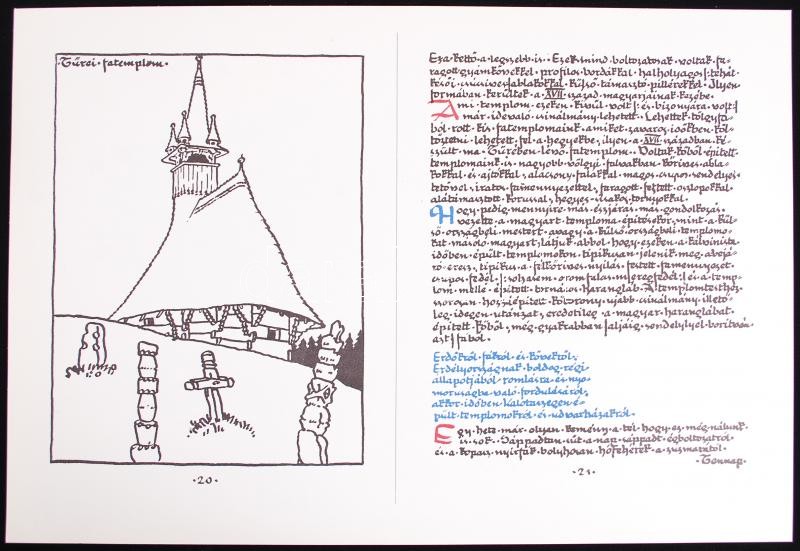 ·Türei·fatemplom·
·20·
Eza kettő·a·legszebb·is·· Ezek·mind·boltozatosak·voltak·fa-
ragott·gyámkövekkel·profilos·bordákkal·halholyagos/:tehát
késői:/csúcsíves·ablakokkal·Külső·támasztó·pillérekkel·Ilyen
formában·kerültek·a·XVII·század·magyarjainak·kezébe·
Ami·templom·ezeken·kívül·volt/:és·bizonyára·volt:/
már·idevaló·csinálmány·lehetett·Lehettek·tölgyfá-
ból·rótt·kis·fatemplomaink·amiket·zavaros·időkben·köl-
töztetni·lehetett·fel·a·hegyekbe,ilyen·a·XVII·században·ké-
szült·ma·Türében·lévő·fatemplom··Voltak·kőből·épített
templomaink·is·nagyobb·völgyi·falvakban·köríves·abla-
kokkal·és·ajtókkal,alacsony·falakkal·magos·csúpos·zsendelyes
tetővel,íratos·famennyezettel,faragott·festett·oszlopokkal
alátámasztott·kórussal,hegyes·csúkos·tornyokkal·
Hogy·pedig·mennyire·más·észjárás·más·gondolkozás
vezette·a·magyart·temploma·építésekor,mint·a·kül-
ső·országbeli·mestert·avagy·a·külső·országbeli·templomo-
kat·másoló·magyart·látjuk·abból·hogy·ezeken·a·kálvinista
időben·épült·templomokon·típikusan·jelenik·meg·a·bejá-
ró·eresz,típikus·a·félköríves·nyílás,festett·famennyezet
csúpos·fedél/:sohasem·oromfalas·nyeregfedél:/és·a·temp-
lom·mellé·épített·tornácos·Harangláb·A·templomtesthez
szorosan·hozzáépített·kőtorony·újabb·csinálmány·illető-
leg·idegen·utánzat,eredetileg·a·magyar·haranglábat
épített·kőből,még·gyakrabban·faljáig·zsendelylyel·borítván
azt/fából·
Erdőkről·fákról·és·kövekről,
Erdélyországnak·boldog·régi
állapotjából·romlásra·és·nyo-
morúságba·való·fordulásáról,
akkor·időben·Kalotaszegen·é-
pült·templomokról·és·udvarházakról·
Egy·hete·már·olyan·kemény·a·tél·hogy·ez·még·nálunk
is·sok··Sáppadtan·süt·a·nap·sáppadt·égboltozatról
és·a·kopasz·nyírfák·bolyhosan·hófehérek·a·zúzmarától·
·Tennap·
·21·